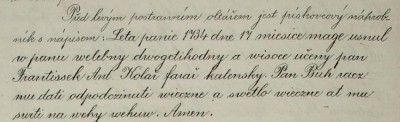 Před levým postranním oltářem jest pískovcový náhrob-
ník s nápisem: Leta panie 1734 dne 17 miesice mage usnul
w panu welebny dwogctihodny a wisoce učeny pan
Frantissek Ant. Kolář farař kalensky Pan Buh racz
mu dati odpodczinuti wieczne a swětlo wieczne at mu
switi na wěky wěkuw. Amen.